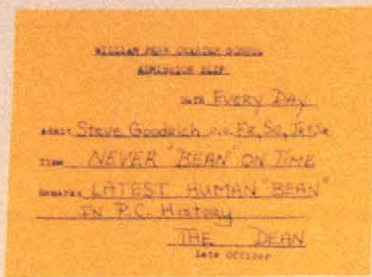 WILLIAM PENN CHARTER SCHOOL
ADMISSION SLIP
DATE EVERY DAY
Admit Steve Goodrich Fr, So, Jr, Sr
Time NEVER "BEAN" ON TIME
Remarks LATEST HUMAN "BEAN"
IN P.C. History
THE DEAN
Late Officer